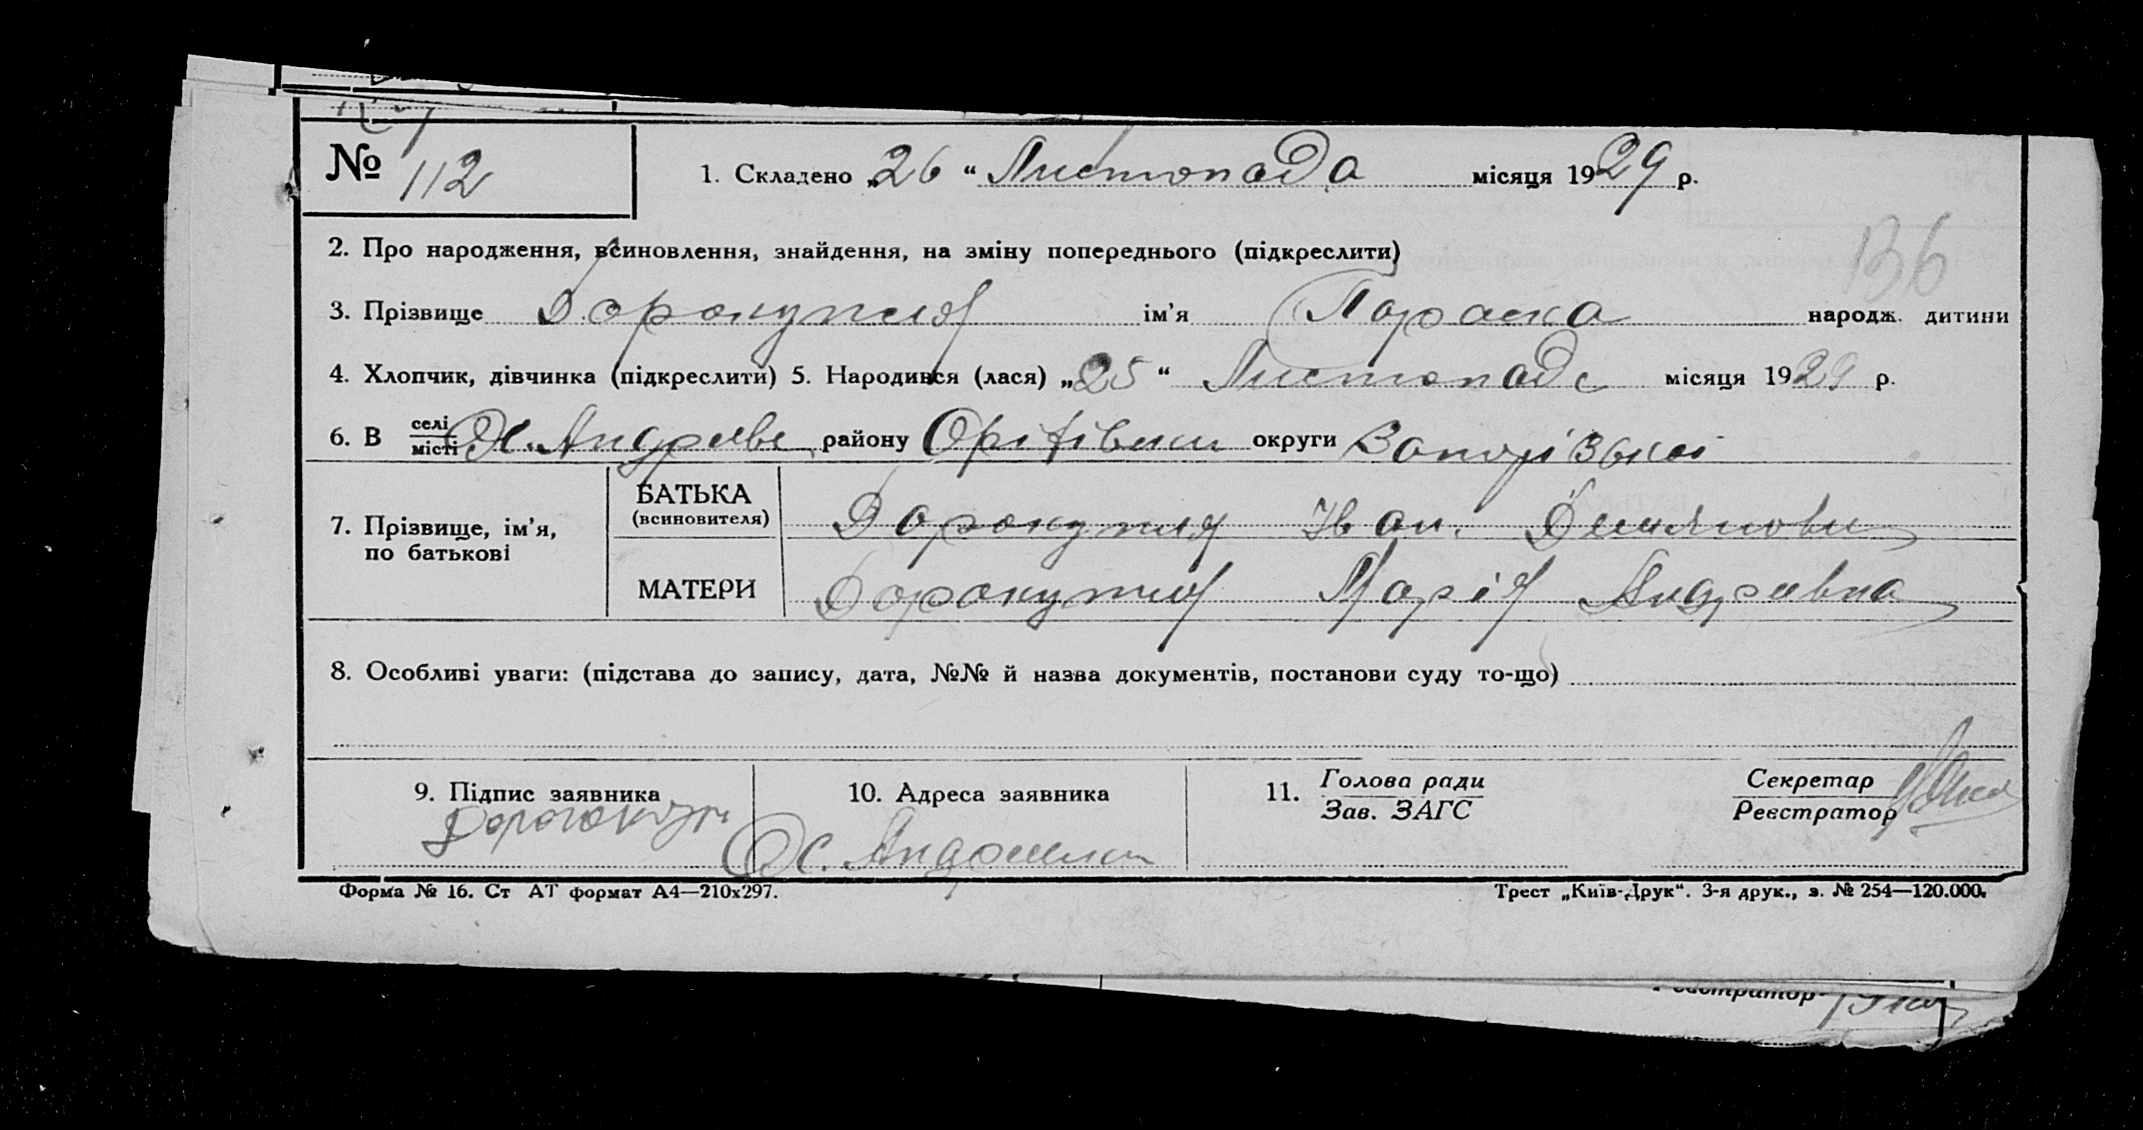 № 112
1. Складено „26“ Листопада місяця 1929 р.
2. Про народження, всиновлення, знайдення, на зміну попереднього (підкреслити)
136
3. Прізвище Дорокупля ім'я Параска народж. дитини
4. Хлопчик, дівчинка (підкреслити) 5. Народився (лася) „25“ Листопада місяця 1929 р.
6. В селі місті Андреевс району Оріхівськ округи Запорізької
7. Прізвище, ім'я, по батькові
БАТЬКА (всиновителя) Дорокупля Іван Демянови
МАТЕРИ Дорокупля Марія Андреевна
8. Особливі уваги: (підстава до запису, дата, №№ й назва документів, постанови суду то-що)
9. Підпис заявника
10. Адреса заявника
11. Голова ради
Зав. ЗАГС
Секретар
Реєстратор
Форма № 16. Ст АТ формат А4—210х297.
Трест „Київ-Друк“. 3-я друк., з. № 254—120.000.
Реєстратор